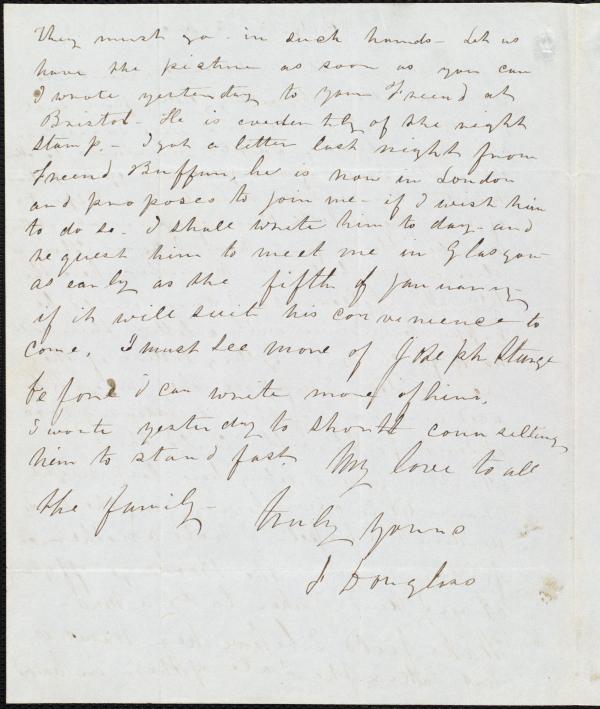 They must go - in such hands - Let us
have the picture as soon as you can
I wrote yesterday to your Friend at
Bristol - He is evidently of the right
stamp. - I got a letter last night from
Friend Buffum, he is now in London
and proposes to join me - if I wish him
to do so. I shall write him to day - and
request him to meet me in Glasgow
as early as the fifth of January -
if it will suit his convenience to
come. I must see more of Joseph Sturge
before I can write more of him.
I wrote yesterday to counselling
him to stand fast. My love to all
the family -
truly yours
F Douglass